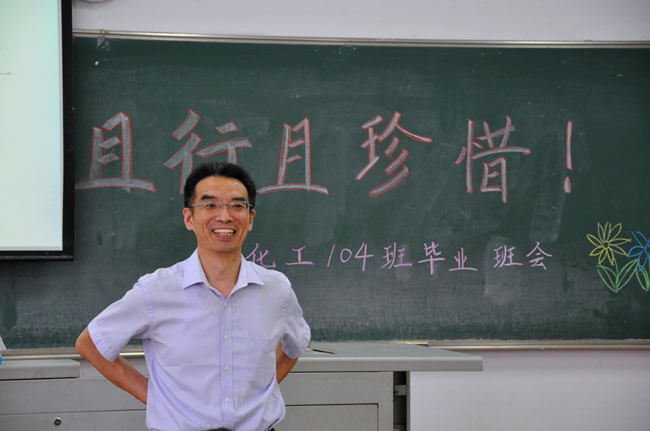 且行且珍惜！
化工104班毕业班会